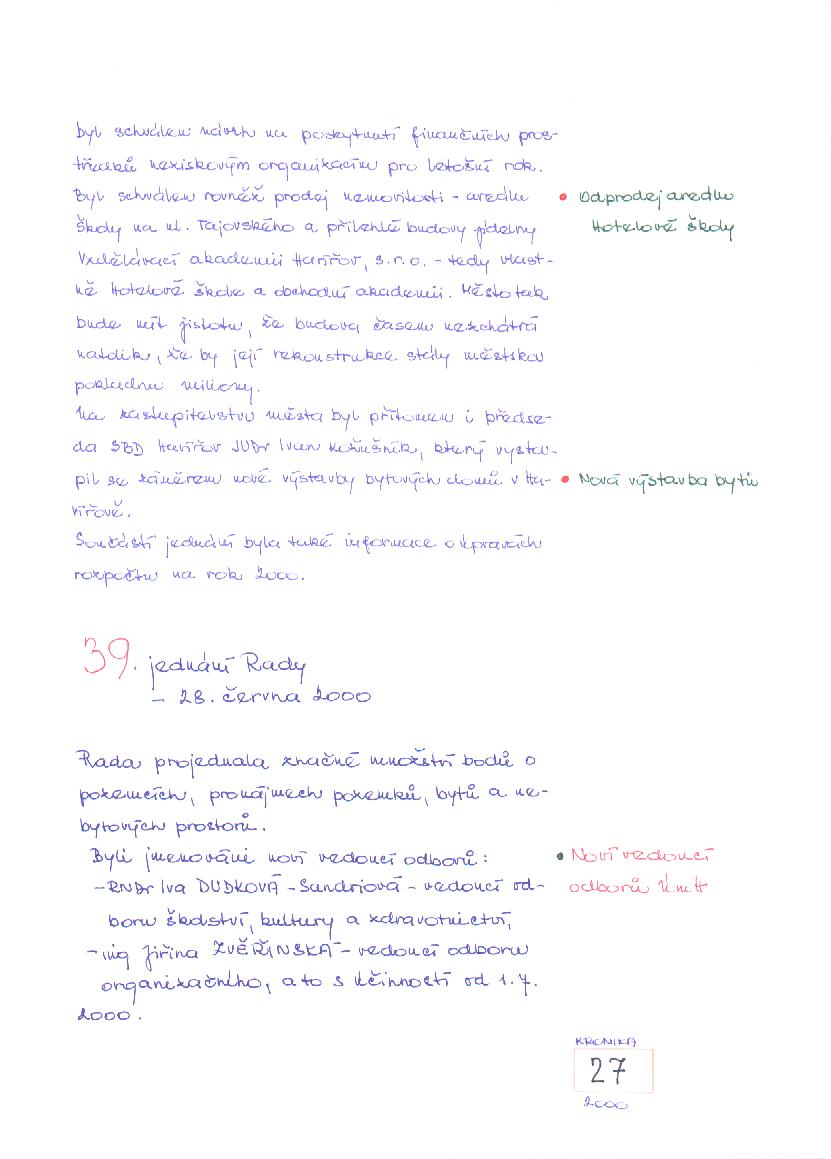 byl schválen návrh na poskytnutí finančních pros-
tředků neziskovým organizacím pro letošní rok.
Byl schválen rovněž prodej nemovitosti - areálu
• Odprodej areálu
školy na ul. Tajovského a přilehlé budovy jídelny
Hotelové školy
Vzdělávací akademii Havířov, s.r.o. - tedy vlast-
ně Hotelové škole a obchodní akademii. Město tak
bude mít jistotu, že budova časem nezchátrá
natolik, že by její rekonstrukce stály městskou
pokladnu miliony.
Na zastupitelstvu města byl přítomen i předse-
da SBD Havířov JUDr Ivan Košušník, který vystou-
pil se záměrem nové výstavby bytových domů v Ha-
• Nová výstavba bytů
vířově.
Součástí jednání byla také informace o úpravách
rozpočtu na rok 2000.
39. jednání Rady
- 28. června 2000
Rada projednala značné množství bodů o
pozemcích, pronájmech pozemků, bytů a ne-
bytových prostorů.
Byli jmenováni noví vedoucí odborů:
• Noví vedoucí
-RNDr Iva DUDKOVÁ - Sandriová - vedoucí od-
odborů ÚmH
boru školství, kultury a zdravotnictví,
- ing Jiřina ZVĚŘINSKÁ - vedoucí odboru
organizačního, a to s účinností od 1.7.
2000.
KRONIKA
27
2000